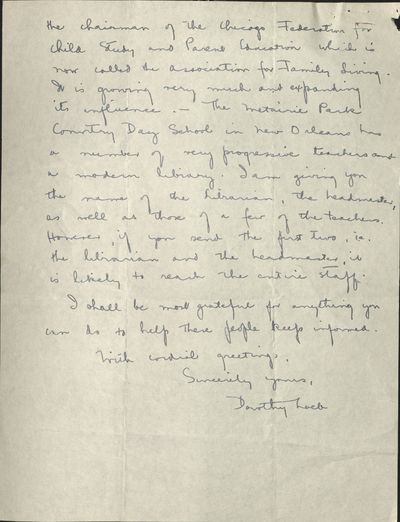 the chairman of the Chicago Federation for
Child Study and Parent Education which is
now called the association for Family Living.
It is growing very much and expanding
its influence. - The Metairie Park
Country Day School in New Orleans has
a number of very progressive teachers and
a modern library. I am giving you
the name of the librarian, the headmaster,
as well as those of a few of the teachers.
However, if you send the first two, ie.
the librarian and the headmaster, it
is likely to reach the entire staff.
I shall be most grateful for anything you
can do to help these people keep informed.
With cordial greetings,
Sincerely yours,
Dorothy Loeb